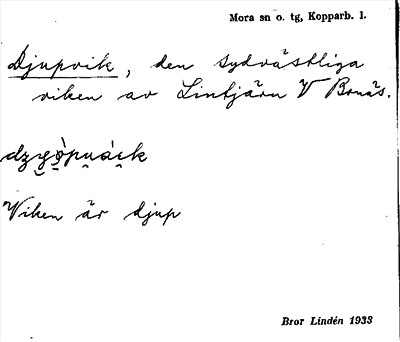 Mora sn o. tg, Kopparb. l.
Djupvik, den sydvästliga
viken av Lintjärn V Bonäs.
Viken är djup
Bror Lindén 1933